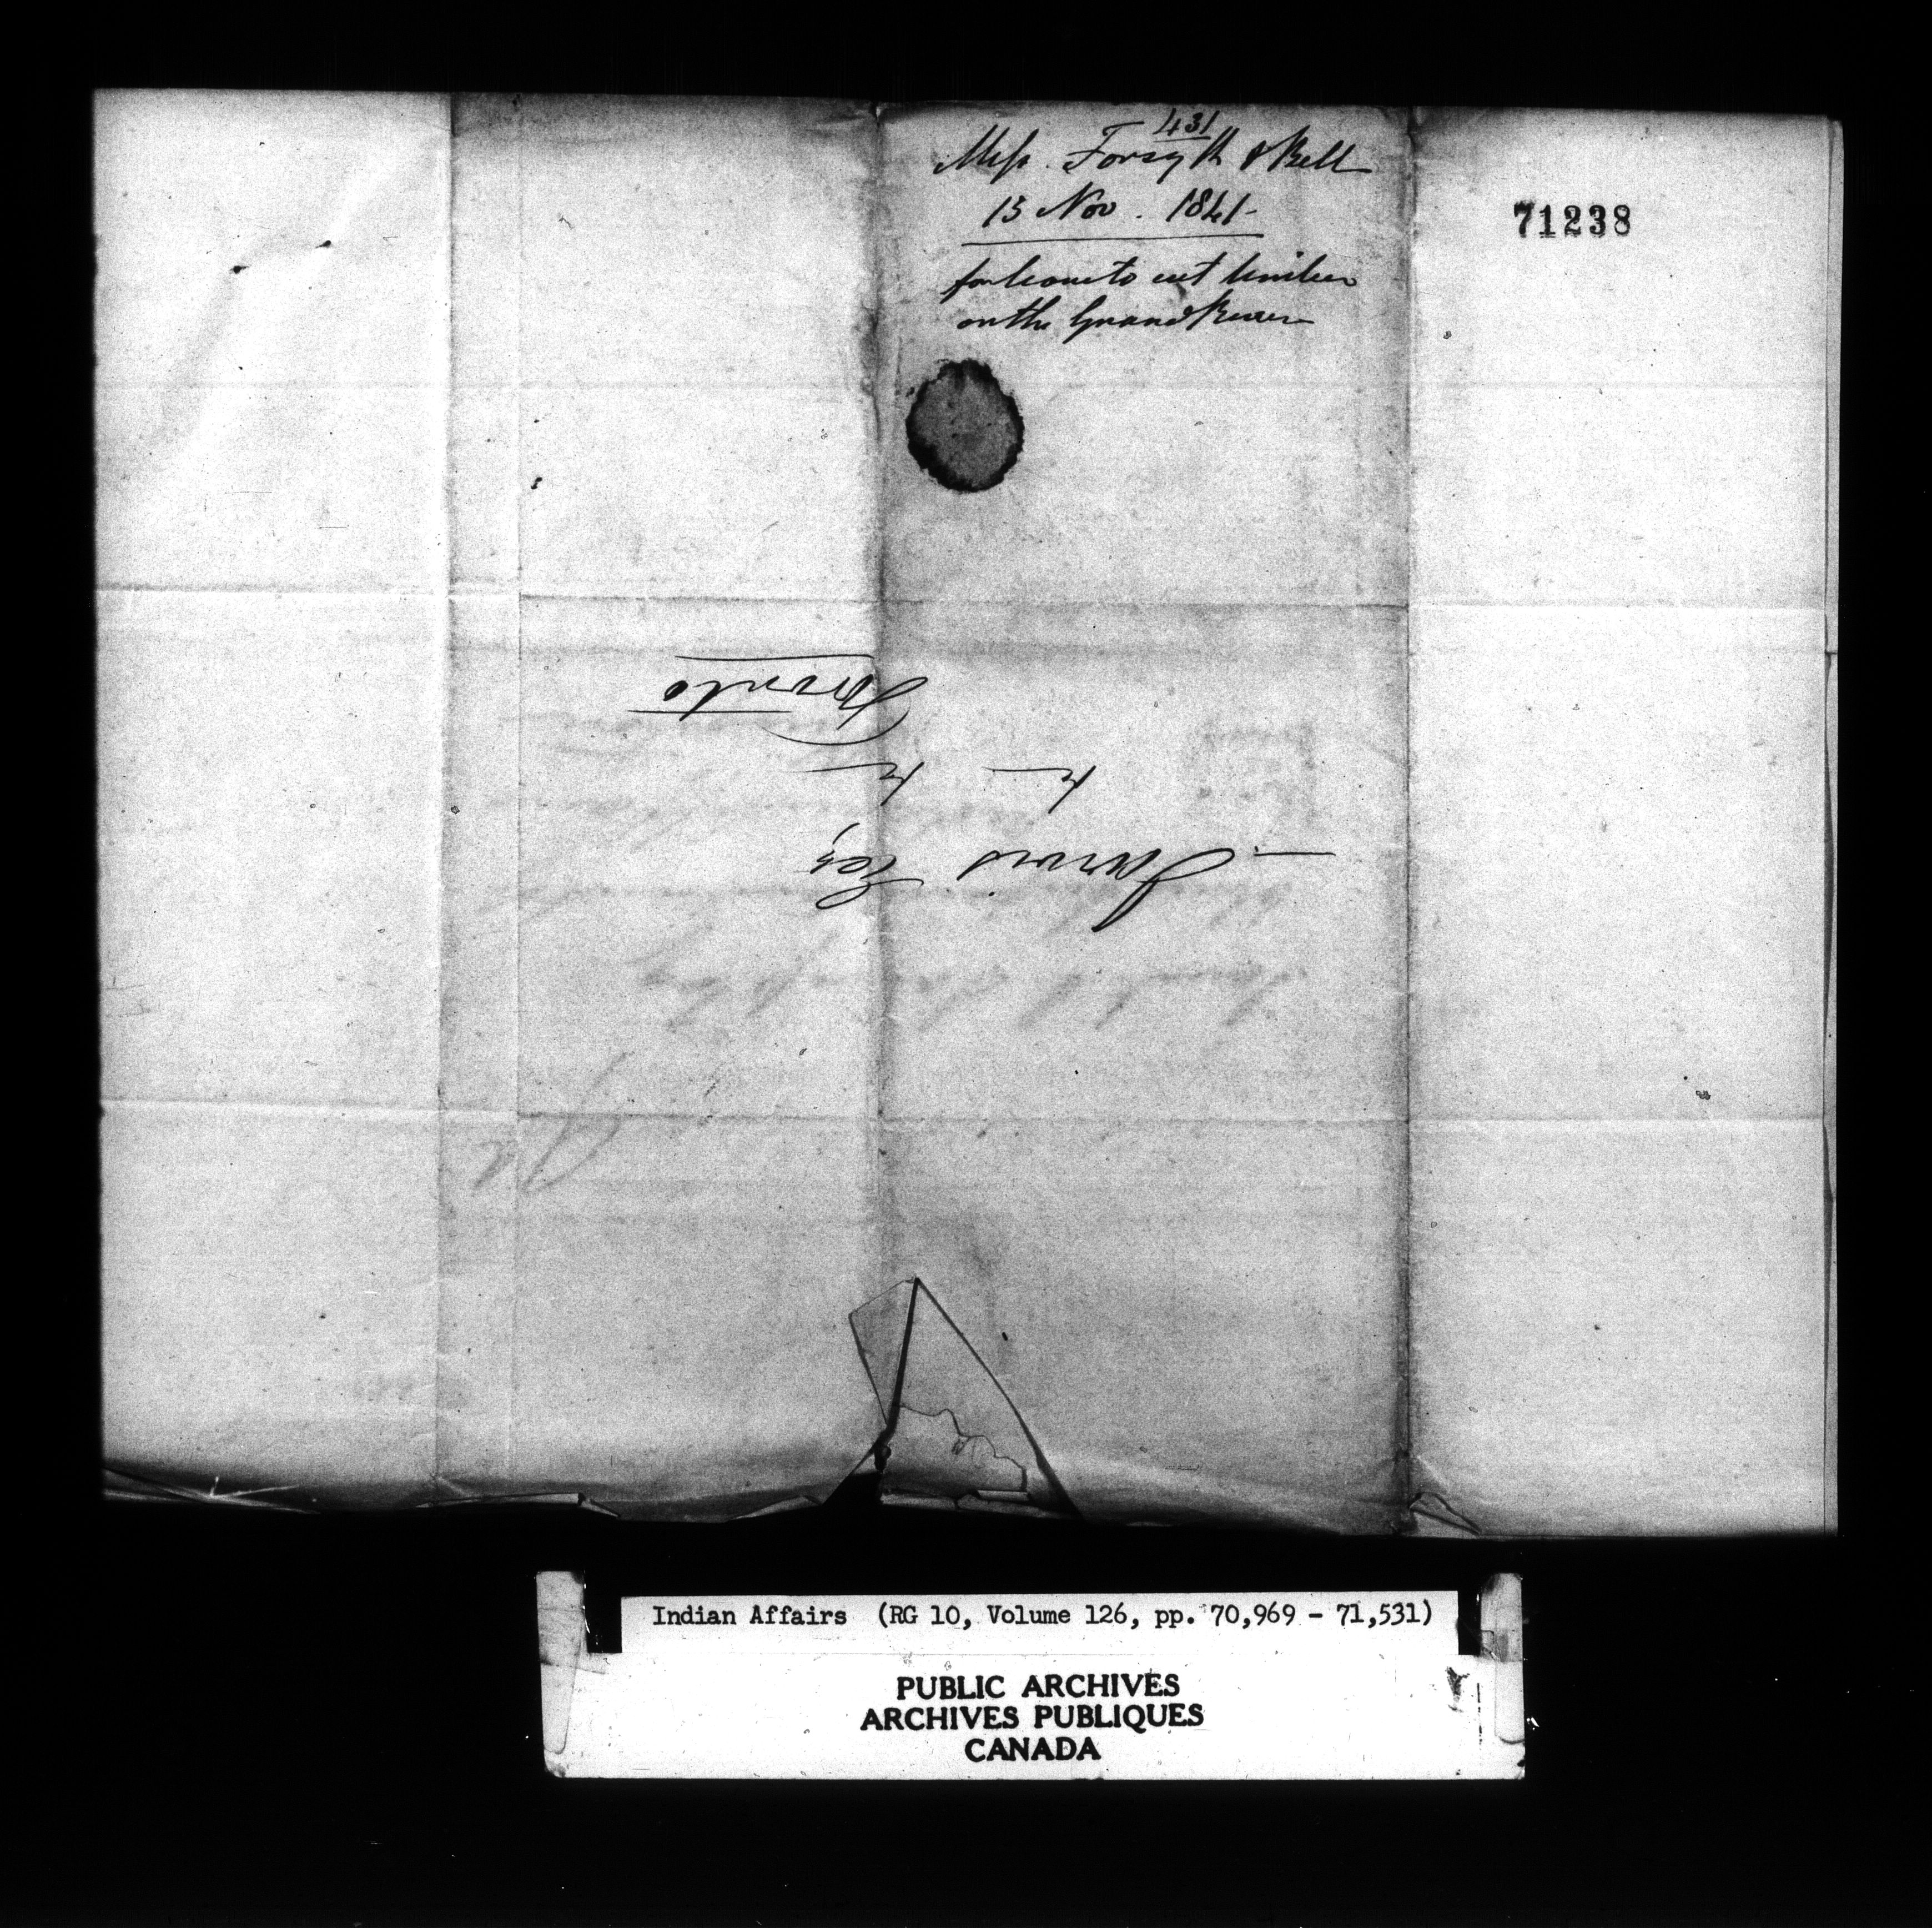 431
Mess. Forsyth & Bell
15 Nov. 1841-
for leave to cut timber
on the Grand River
71238
Jarvis Esq
Toronto
Indian Affairs (RG 10, Volume 126, pp. 70,969 - 71,531)
PUBLIC ARCHIVES
ARCHIVES PUBLIQUES
CANADA